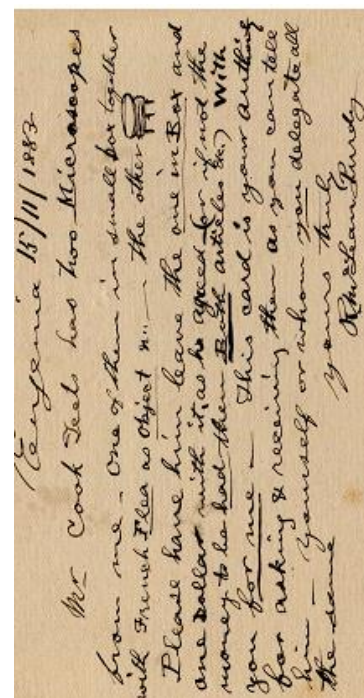 Eugenia 15/11/1883
Mr Cook Teels has two Microscopes
from me - One of them in small box together
with French Flea as object — the other
Please have him leave the one in Box and
one dollar with it, as he agreed for if not the
money to be had then Both articles &c) With
you for me — This card is your authority
for asking & receiving them as you can tell
him — yourself or whom you delegate all
the same
yours truly
Purdy